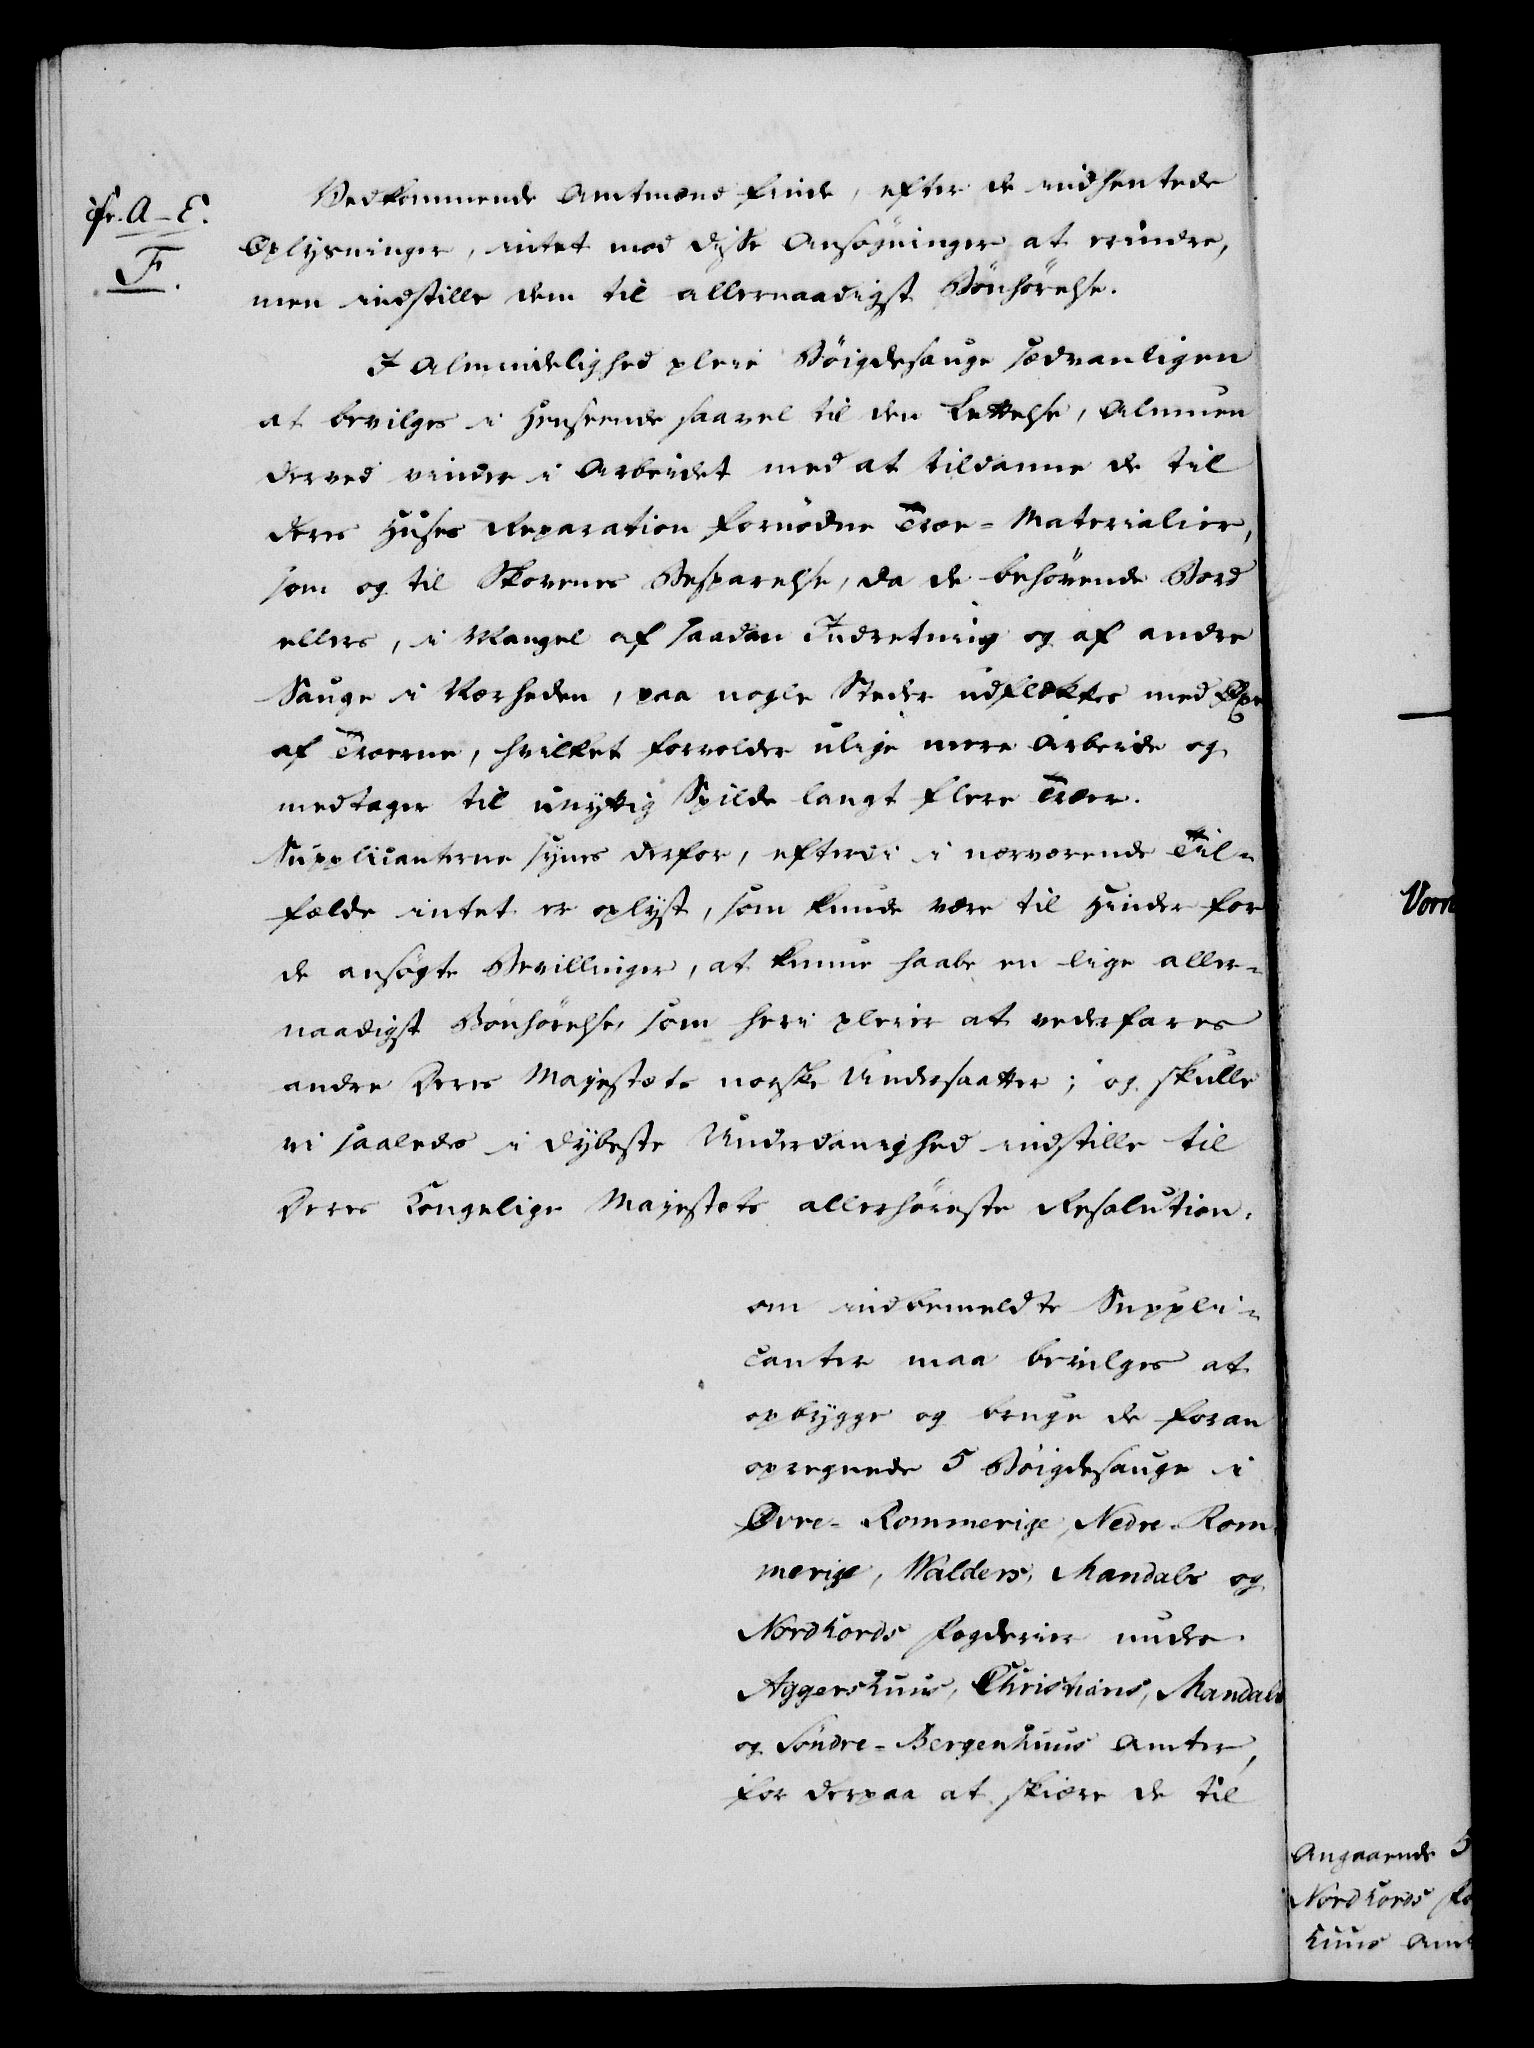 cfr. A-E.
F.
Vedkommende Amtmænd finde, efter de indhentede
Oplysninger, intet mod disse Ansøgninger at erindre,
men indstille dem til allernaadigst Bönhörelse.
I Almindelighed pleie Böigdesauge sædvanligen
at bevilges i Henseende saavel til den Lettelse, Almuen
derved vinder i Arbeidet med at tildanne de til
deres Huses Reparation fornödne Træe-Materialier,
som og til Skovenes Besparelse, da de behövende Bord
ellers, i Mangel af saadan Indretning og af andre
Sauge i Nærheden, paa nogle Steder udflækkes med Øxe
af Træerne, hvilket forvolder ulige mere Arbeide og
medtager til unyttig Spilde langt flere Træer.
Supplicanterne synes derfor, efterdi i nærværende Til-
fælde intet er oplyst, som kunde være til Hinder for
de ansögte Bevillinger, at kunne haabe en lige aller-
naadigst Bönhörelse, som heri pleier at vederfares
andre Deres Majestæts norske Undersaatter; og skulle
vi saaledes i dybeste Underdanighed indstille til
Deres Kongelige Majestæts allerhöieste Resolution,
om indbemeldte Suppli-
canter maa bevilges at
opbygge og bruge de foran
opregnede 5 Böigdesauge i
Øvre-Rommerige, Nedre-Rom-
merige, Walders, Mandals og
Nordhords Fogderier under
Aggershuus, Christians, Mandals
og Söndre-Bergenhuus Amter,
for derpaa at skiære de til
Vorr
Angaaende 5
Nordhords Fo
huus Amt